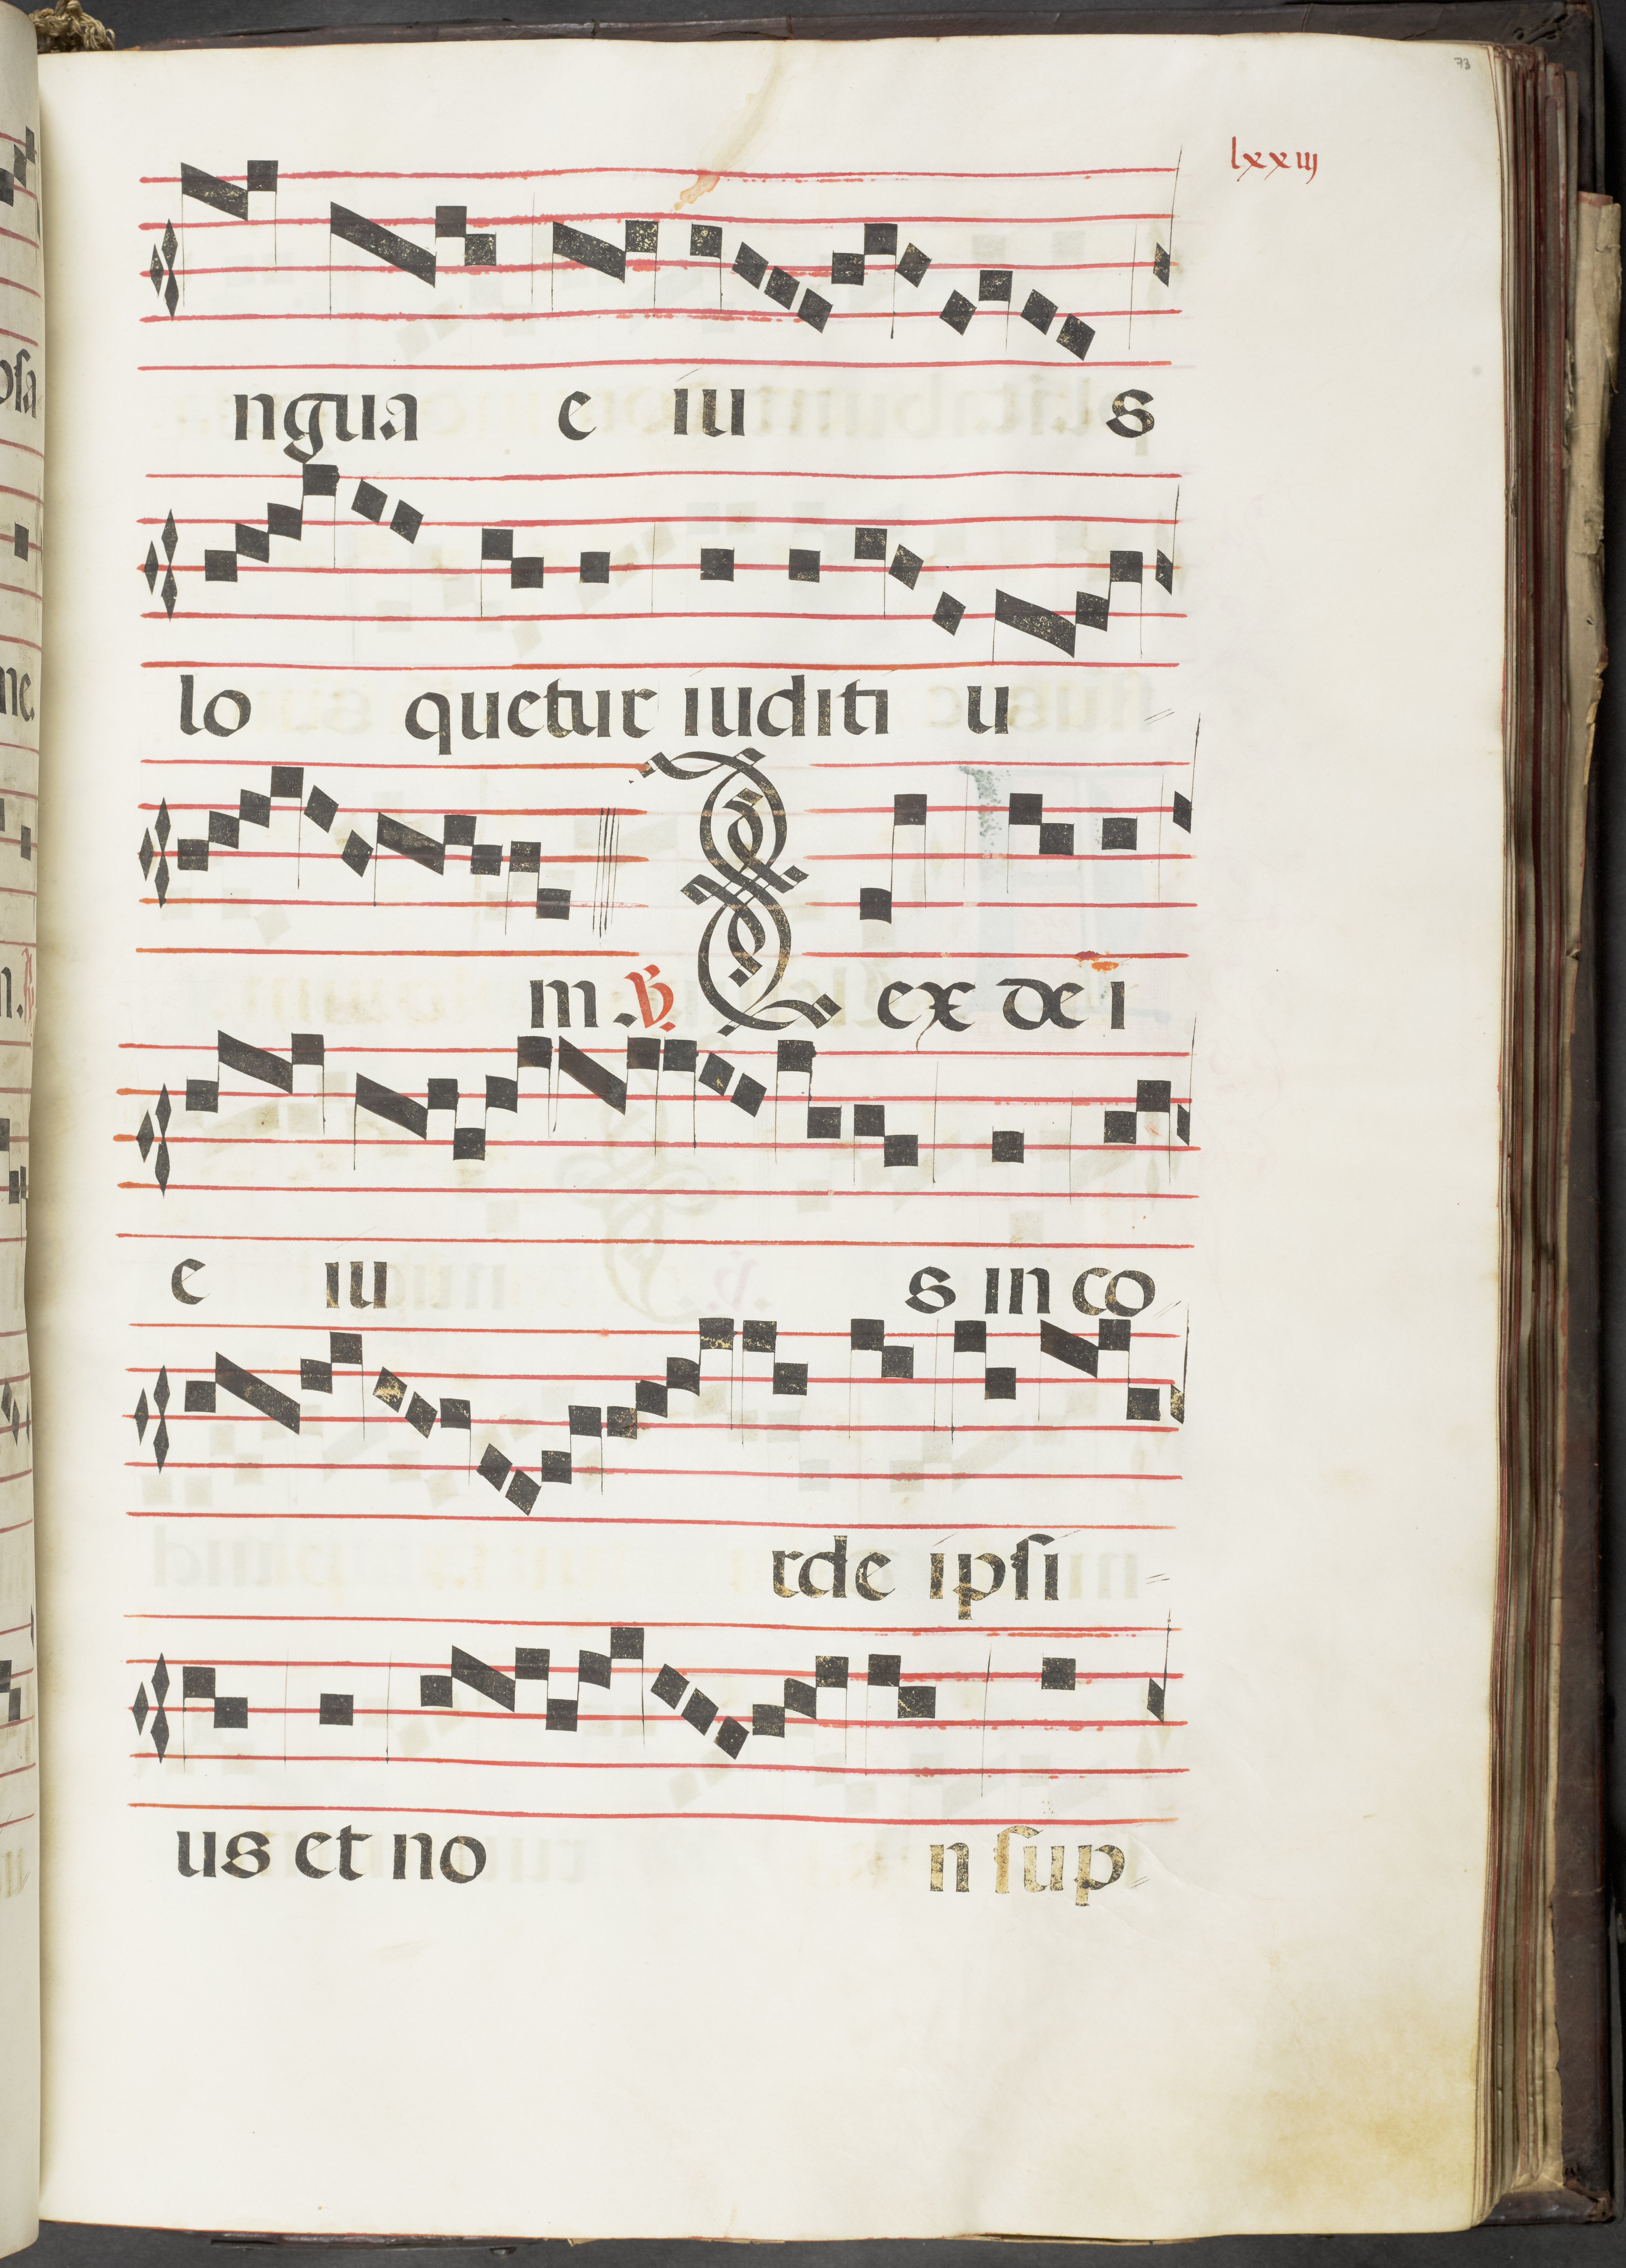 73
lxxiij
ngua e iu s
lo quetur iuditi u
m. ℣. L ex dei
e iu s in co
rde ipſi
us et no n ſup